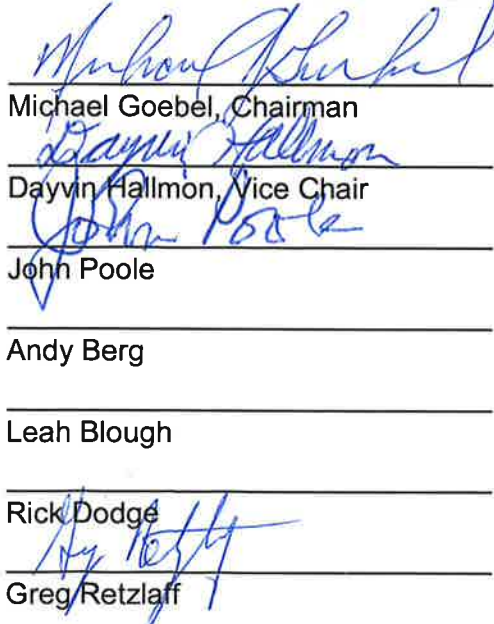 Michael Goebel
Michael Goebel, Chairman
Dayvin Hallmon
Dayvin Hallmon, Vice Chair
John Poole
John Poole
Andy Berg
Leah Blough
Rick Dodge
Greg Retzlaff